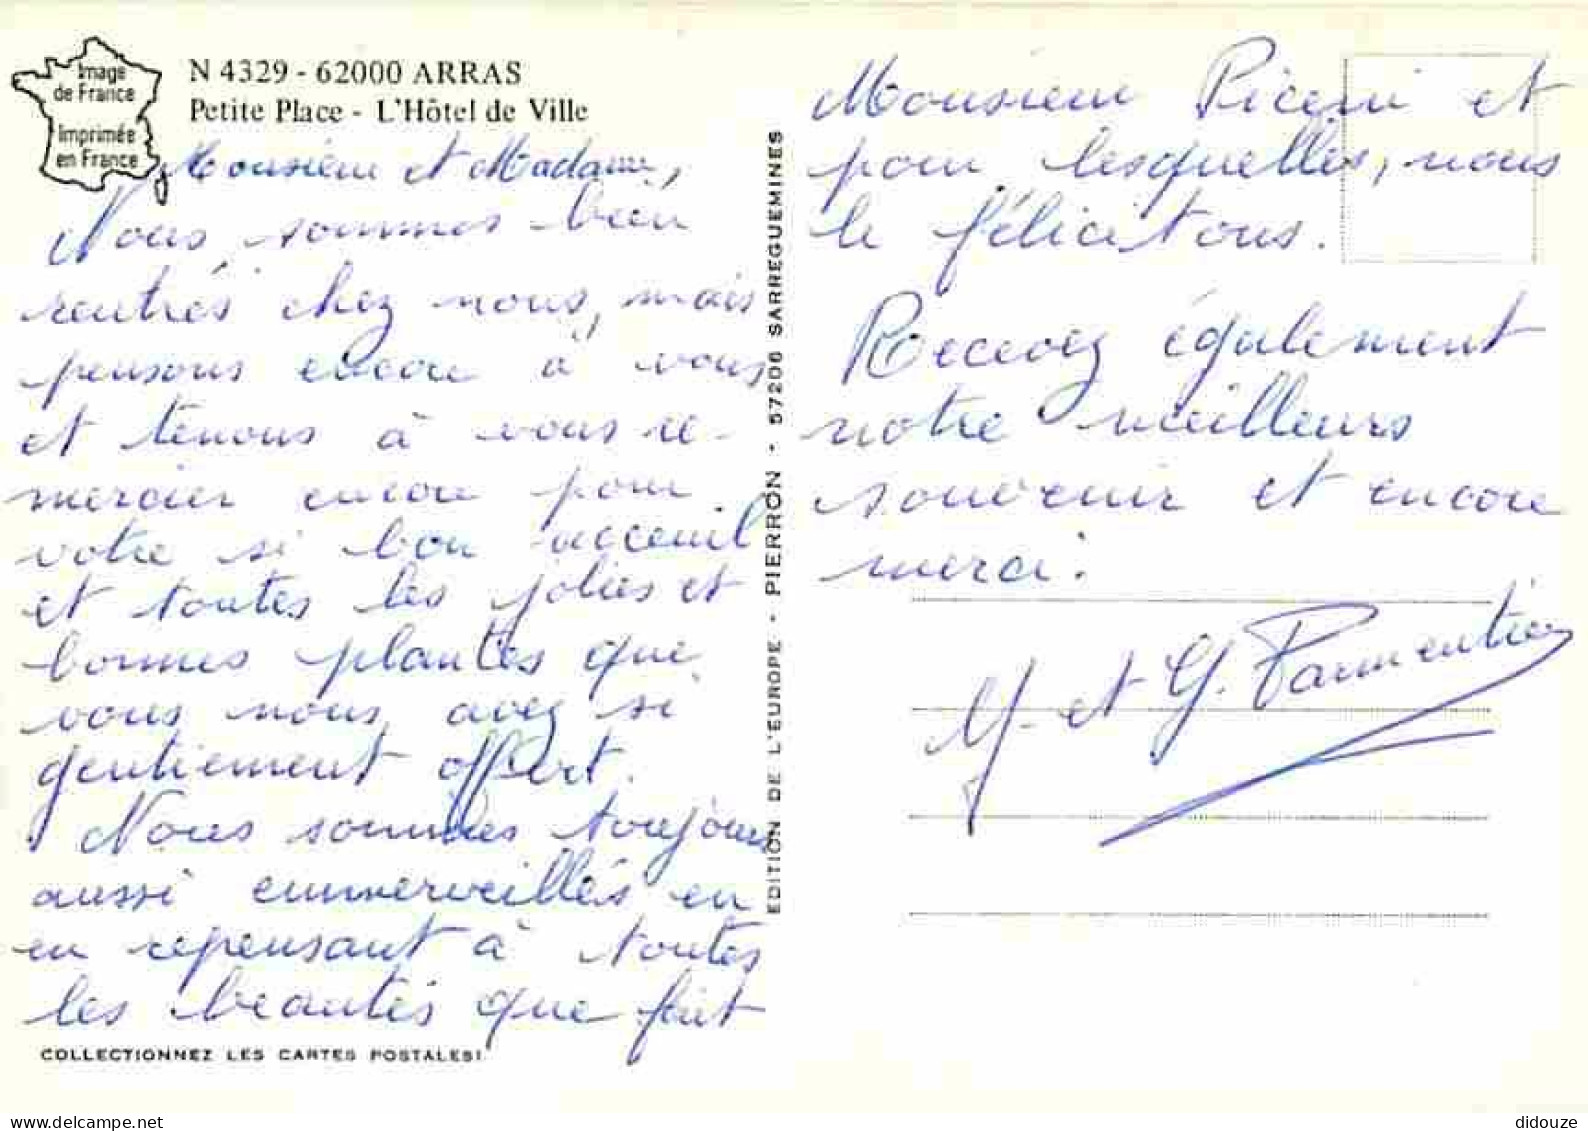 Image
de France
Imprimée
en France
N 4329 - 62000 ARRAS
Petite Place - L'Hôtel de Ville
Monsieur et Madame,
Nous, sommes bien
rentrés chez nous, mais
pensons encore à vous
et tenons à vous re-
mercier encore pour
votre si bon acceuil
et toutes les jolies et
bonnes plantes que
vous nous avez si
gentiement offert.
Nous sommes toujours
aussi emmerveillés en
en repensant à toutes
les beautés que fait
COLLECTIONNEZ LES CARTES POSTALES!
EDITION DE L'EUROPE - PIERRON - 57206 SARREGUEMINES
Monsieur et
pour lesquelles, nous
le félicitons.
Recevez également
notre meilleurs
souvenir et encore
merci.
M. et G. Parmentier
didouze